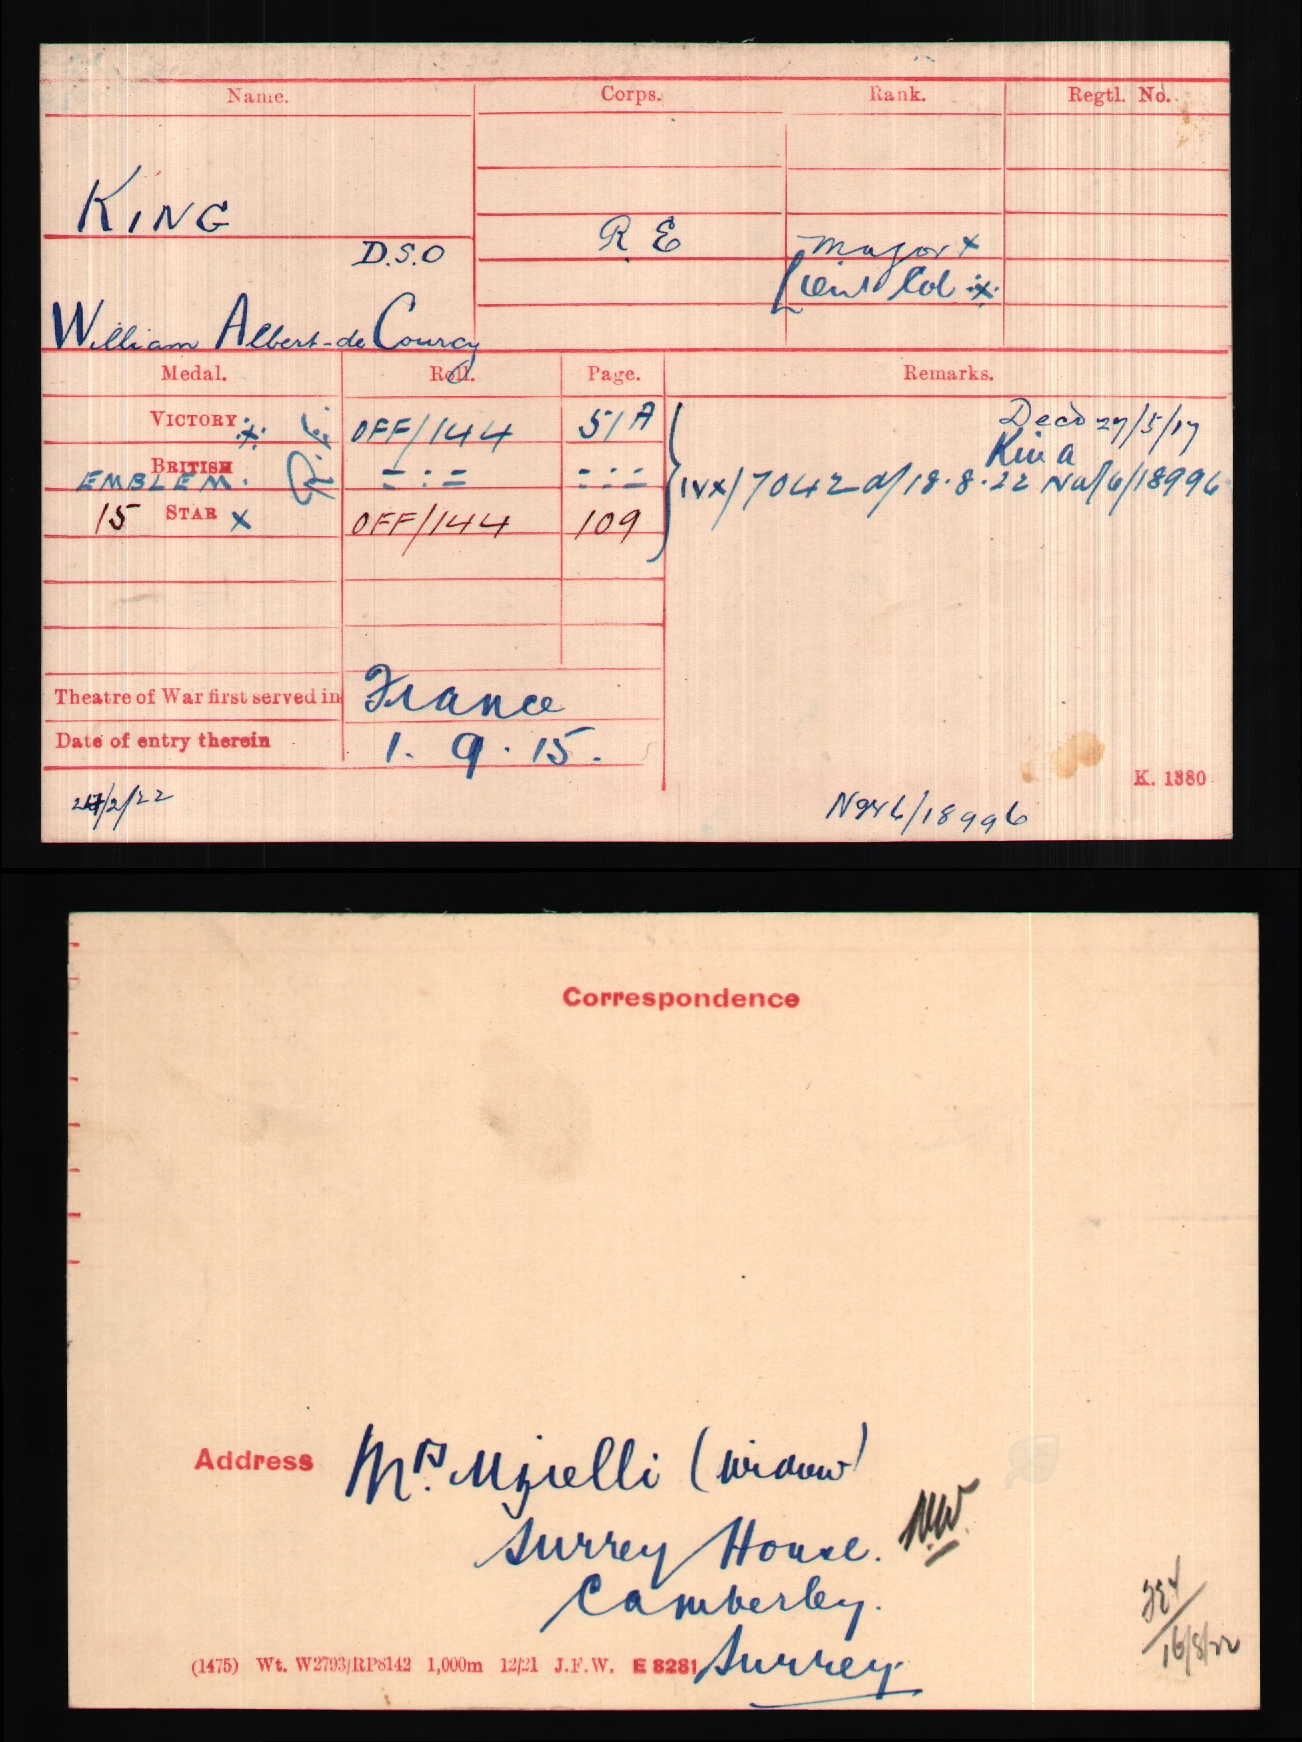 Name. Corps. Rank. Regtl. No.
KING
D.S.O
William Albert-de Courcy
R E
Major x
Lieut Col x
Medal. Roll. Page. Remarks.
VICTORY x OFF/144 51A Dec'd 27/5/17
BRITISH -:= -:=- K in a
EMBLEM. IVX/7042 d/18.8.22 NW/6/18996
15 STAR x OFF/144 109
Theatre of War first served in France
Date of entry therein 1. 9. 15.
K. 1380
/2/22
/18996
Correspondence
Address Mrs (widow)
Surrey House. NW.
Camberley.
Surrey.
(1475) Wt. W2793/RP8142 1,000m 12/21 J.F.W. E 8281
16/8/22